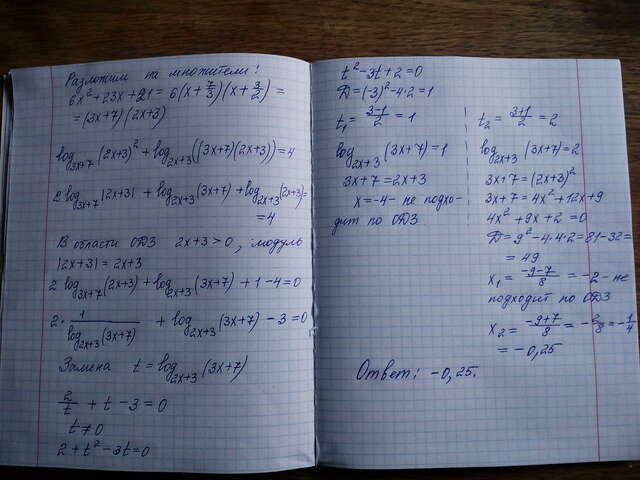 Разложим на множители!
6x² + 23x + 21 = 6(x + 7/3)(x + 3/2) =
= (3x+7)(2x+3)
log₃ₓ₊₇ (2x+3)² + log₂ₓ₊₃ ((3x+7)(2x+3)) = 4
2 log₃ₓ₊₇ |2x+3| + log₂ₓ₊₃ (3x+7) + log₂ₓ₊₃ (2x+3) =
= 4
В области ОДЗ 2x+3>0, модуль
|2x+3| = 2x+3
2 log₃ₓ₊₇ (2x+3) + log₂ₓ₊₃ (3x+7) + 1 - 4 = 0
2 · 1/log₂ₓ₊₃ (3x+7) + log₂ₓ₊₃ (3x+7) - 3 = 0
Замена t = log₂ₓ₊₃ (3x+7)
2/t + t - 3 = 0
t ≠ 0
2 + t² - 3t = 0
t² - 3t + 2 = 0
D = (-3)² - 4·2 = 1
t₁ = (3-1)/2 = 1
log₂ₓ₊₃ (3x+7) = 1
3x+7 = 2x+3
x = -4 - не подхо-
дит по ОДЗ
t₂ = (3+1)/2 = 2
log₂ₓ₊₃ (3x+7) = 2
3x+7 = (2x+3)²
3x+7 = 4x² + 12x + 9
4x² + 9x + 2 = 0
D = 9² - 4·4·2 = 81 - 32 =
= 49
x₁ = (-9-7)/8 = -2 - не
подходит по ОДЗ
x₂ = (-9+7)/8 = -2/8 = -1/4
= -0,25
Ответ: -0,25.